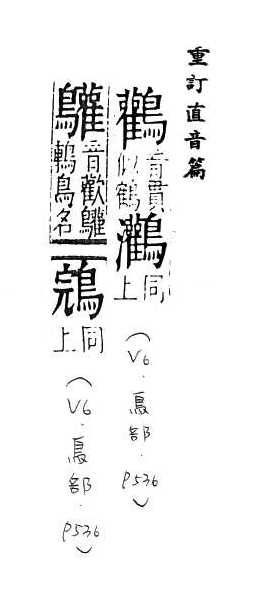 重訂直音篇
鸛 音貫似鶴 同上
(V6.鳥部.P536)
音歡 鳥名 同上
(V6.鳥部.P536)